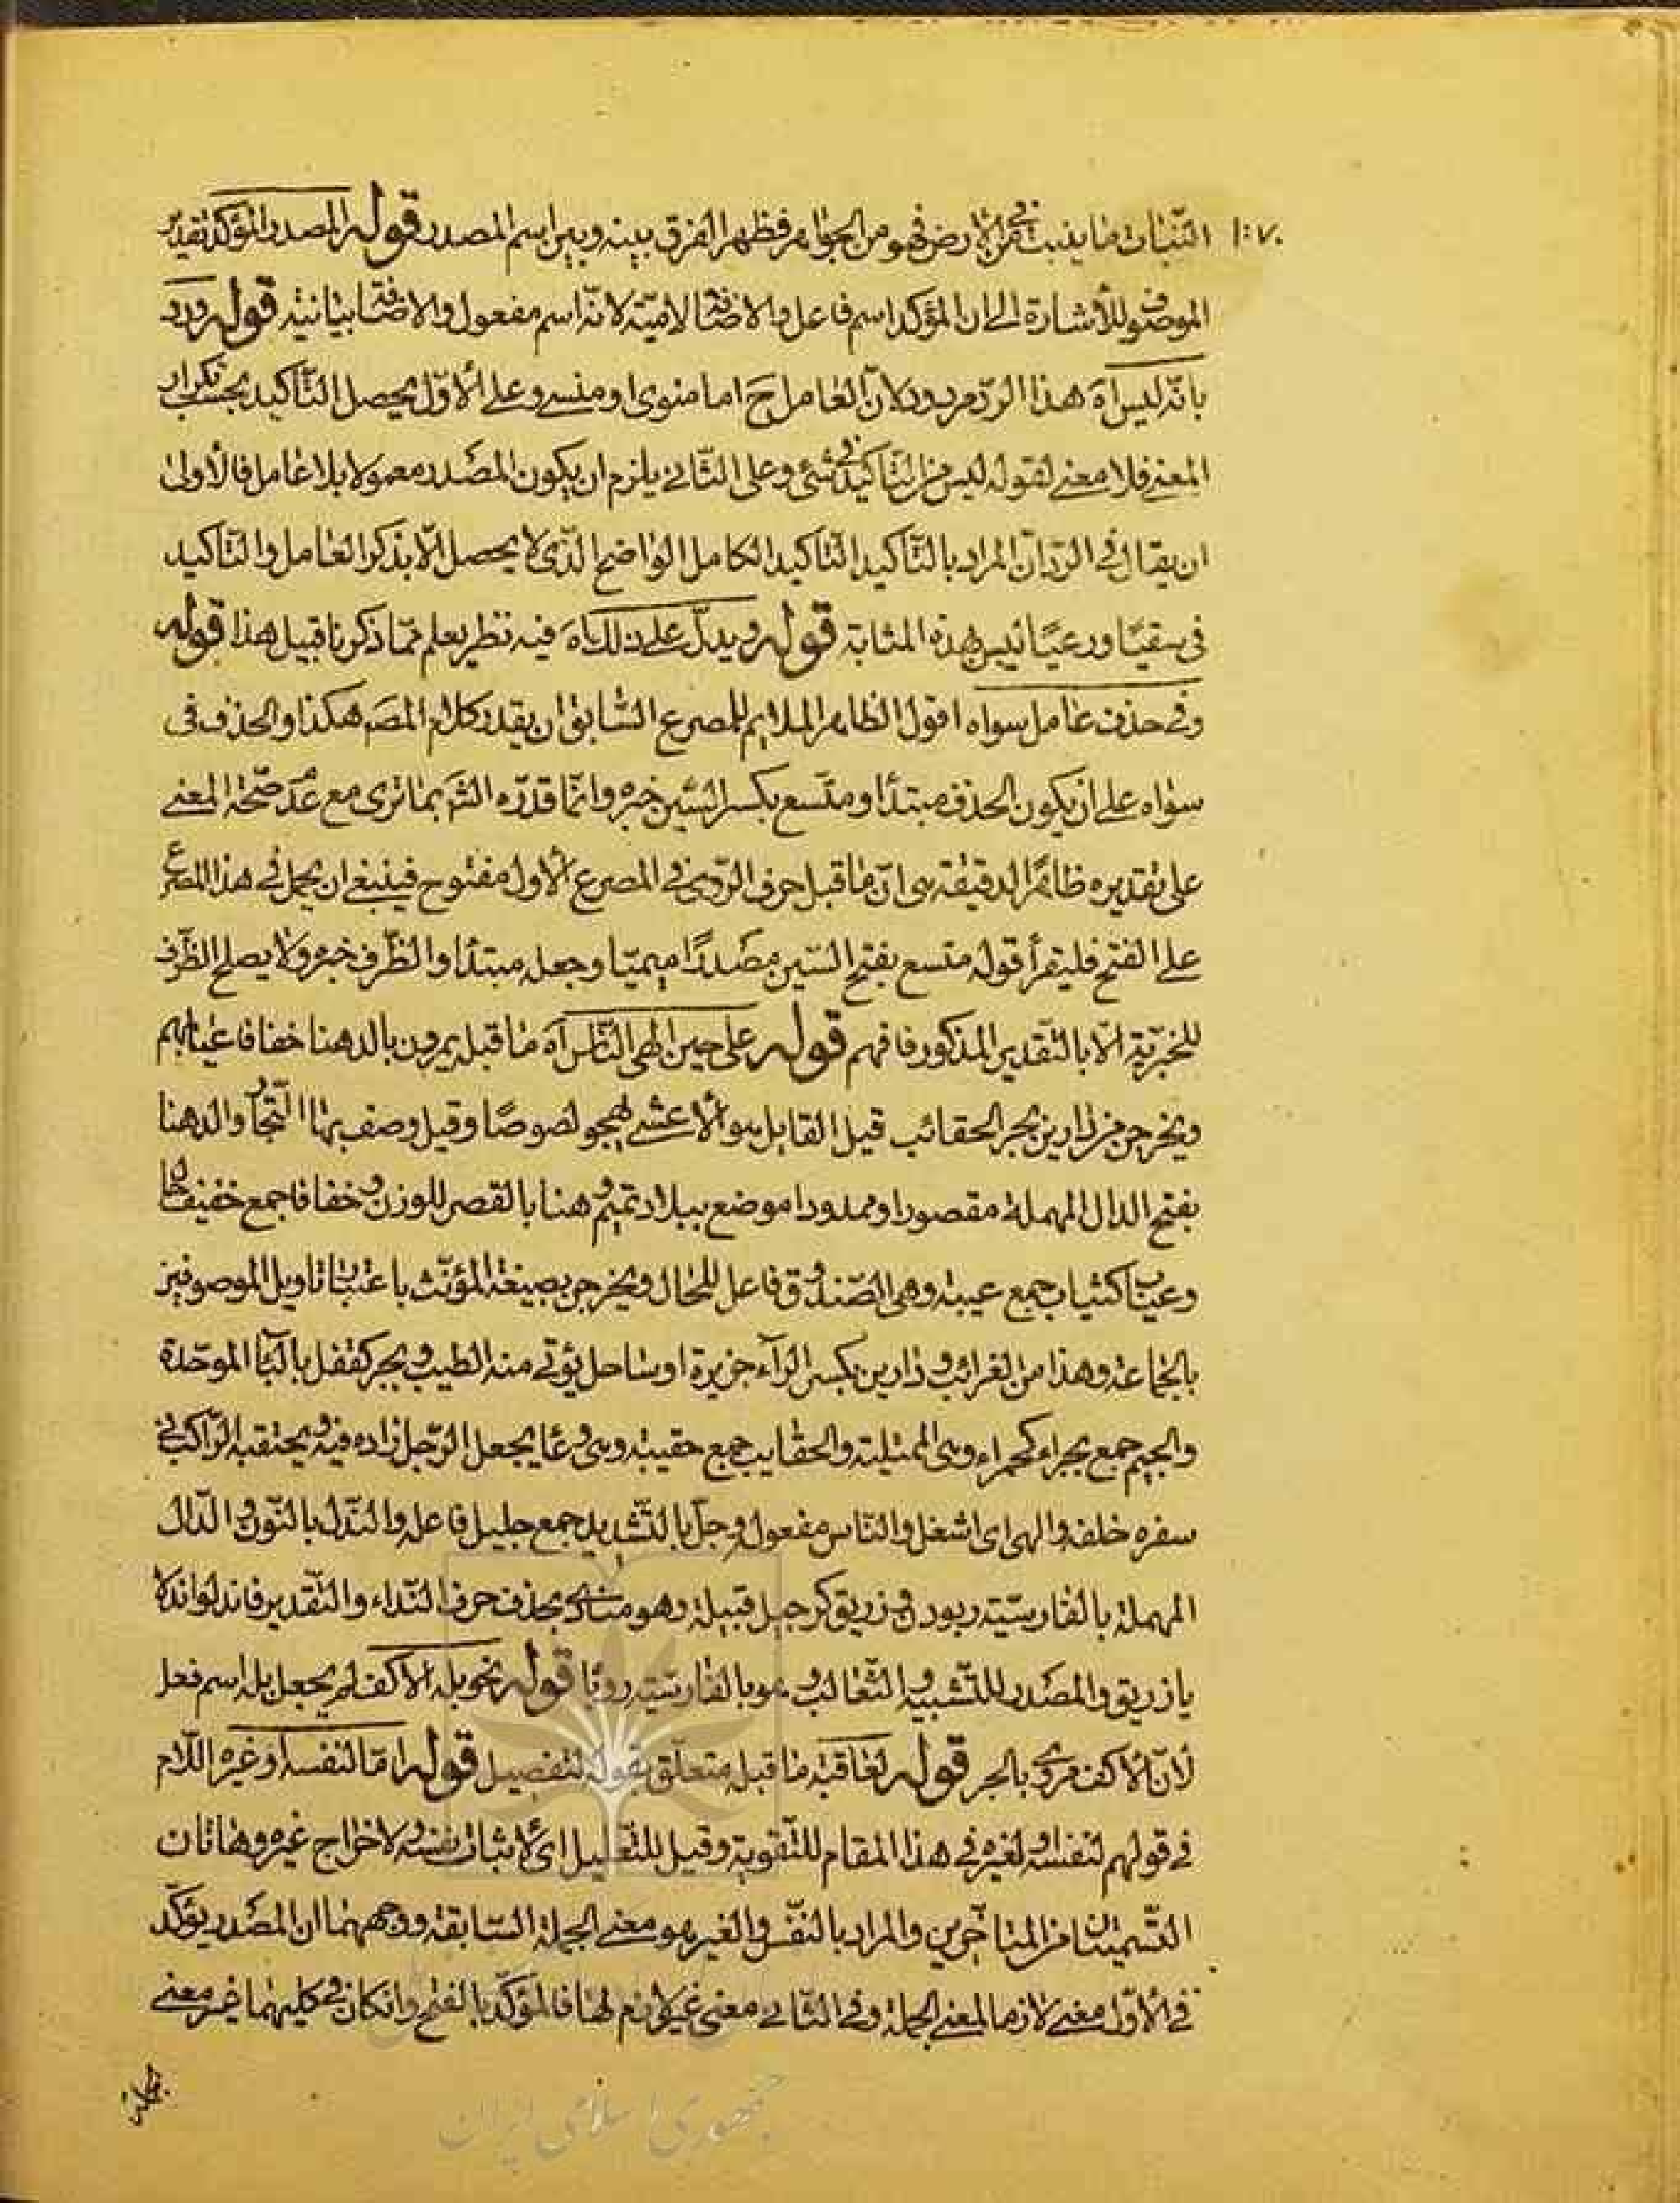 النّبات ما ينبت من الارض فهو من الجواهر فظهر الفرق بينه وبين اسم المصدر قوله المصدر المؤكد تقدير
الموصوف للأشارة الى ان المؤكد اسم فاعل والاضافة لاميّة لانّه اسم مفعول والاضافة بيانية قوله ورد
بانّه ليس اه هذا الردّ مردود لانّ العامل ح اما منوى او منسى وعلى الأوّل يحصل التّأكيد بحسب تكرار
المعنى فلا معنى لقوله ليس من التّاكيد فى شئ وعلى الثّانى يلزم ان يكون المصدر معمولا بلا عامل فالأولى
ان يقال فى الردّ انّ المراد بالتّأكيد التّاكيد الكامل الواضح الّذى لا يحصل الّا بذكر العامل والتّاكيد
فى سقيًا ورعيًا ليس بهذه المثابة قوله ويدلّ على ذلك اه فيه نظر يعلم ممّا ذكرنا قبيل هذا قوله
وفى حذف عامل سواه اقول الظاهر الملايم للمصرع السّابق ان يقدر كلام المصَ هكذا والحذف فى
سواه على ان يكون الحذف مبتدأ ومتّسع بكسر السّين خبره وانّما قدّره الشّ بما ترى مع عدم صحّة المعنى
على تقديره ظاهرًا لدقيقة هى انّ ما قبل حرف الروى فى المصرع الأوّل مفتوح فينبغى ان يحمل فى هذا المصرع
على الفتح فليقرأ قوله متّسع بفتح السّين مصدرًا ميميّا وجعله مبتدأ والظّرف خبره ولا يصلح الظّرف
للخبريّة الّا بالتّقدير المذكور فافهم قوله على حين الهى النّاس اه ما قبله يمرون بالدهنا خفافا عيابهم
ويخرجن من دارين بجر الحقائب قيل القايل هو الأعشى يهجو لصوصًا وقيل وصف بها التّجار والدهنا
بفتح الدال المهملة مقصورا وممدودا موضع ببلاد تميم وهنا بالقصر للوزن وخفافا جمع خفيف حال
وعياب كثياب جمع عيبة وهى الصّندوق فاعل للحال ويخرجن بصيغة المؤنّث باعتبار تاويل الموصوفين
بالجماعة وهذا من الغرائب ودارين بكسر الرّآء جزيرة او ساحل يؤتى منه الطيب وبجر كقفل بالباء الموحّدة
والجيم جمع بجراء كحمراء وهى الممتلئة والحقايب جمع حقيبة وهى وعاء يجعل الرّجل زاده فيه ويحتقبه الرّاكب فى
سفره خلفه والهى اى اشغل والنّاس مفعوله وجلّ بالتّشديد جمع جليل فاعله والنّدل بالنّون والدّال
المهملة بالفارسيّة ربودن وزريق كرجيل قبيلة وهو منادى بحذف حرف النّداء والتّقدير فاندلوا ندلا
يا زريق والمصدر للتّشبيه والثّعالب هو بالفارسيّة روبا قوله نحو بله الاكف لم يجعل بله اسم فعل
لأنّ الأكف مروى بالجر قوله لعاقبة ما قبله متعلّق بقوله لتفصيل قوله امّا لنفسه او غيره اللّام
فى قولهم لنفسه ولغيره فى هذا المقام للتّقوية وقيل للتّعليل اى لاثبات نفسه ولاخراج غيره وهاتان
التّسميتان من المتاخّرين والمراد بالنّفس والغير هو معنى الجملة السّابقة ووجههما ان المصدر يؤكّد
فى الأوّل معنى لازما لمعنى الجملة وفى الثّانى معنى غير لازم لها فالمؤكّد بالفتح وان كان فى كليهما غير معنى